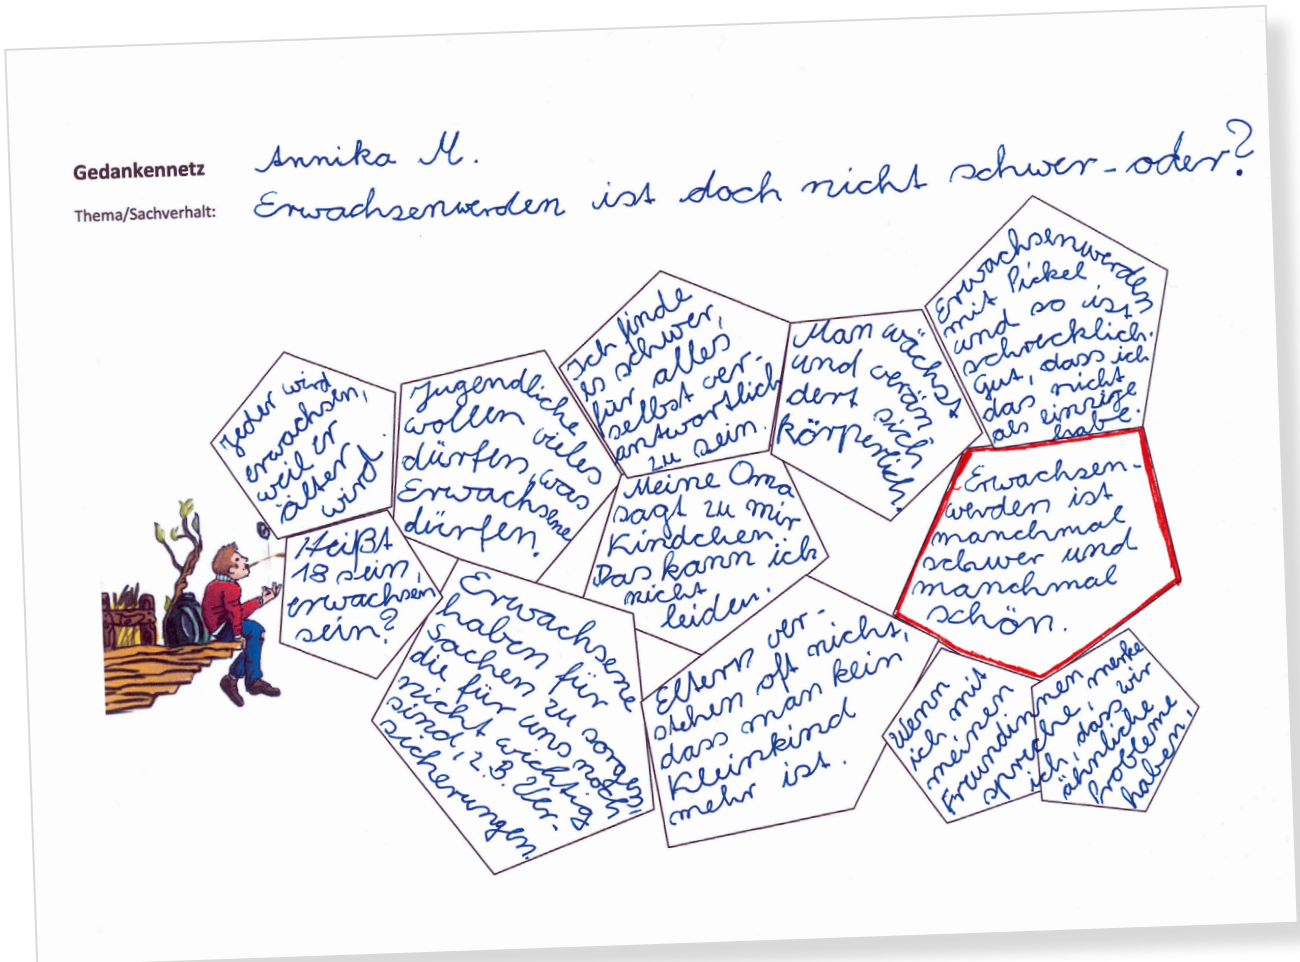 Gedankennetz
Annika M.
Thema/Sachverhalt:
Erwachsenwerden ist doch nicht schwer - oder?
Jeder wird
erwachsen,
weil er
älter
wird.
Jugendliche
wollen vieles
dürfen, was
Erwachsene
dürfen.
Ich finde
es schwer,
für alles
selbst ver-
antwortlich
zu sein.
Man wächst
und verän
dert sich
körperlich.
Erwachsenwerden
mit Pickel
und so ist
schrecklich.
Gut, dass ich
das nicht
als einzige
habe.
Heißt
18 sein,
erwachsen
sein?
Meine Oma
sagt zu mir
Kindchen.
Das kann ich
nicht
leiden.
Erwachsen-
werden ist
manchmal
schwer und
manchmal
schön.
Erwachsene
haben für
Sachen zu sorgen,
die für uns noch
nicht wichtig
sind, z.B. Ver-
sicherungen.
Eltern ver-
stehen oft nicht,
dass man kein
Kleinkind
mehr ist.
Wenn
ich mit
meinen
Freundinnen
spreche, merke
ich, dass wir
ähnliche
Probleme
haben.